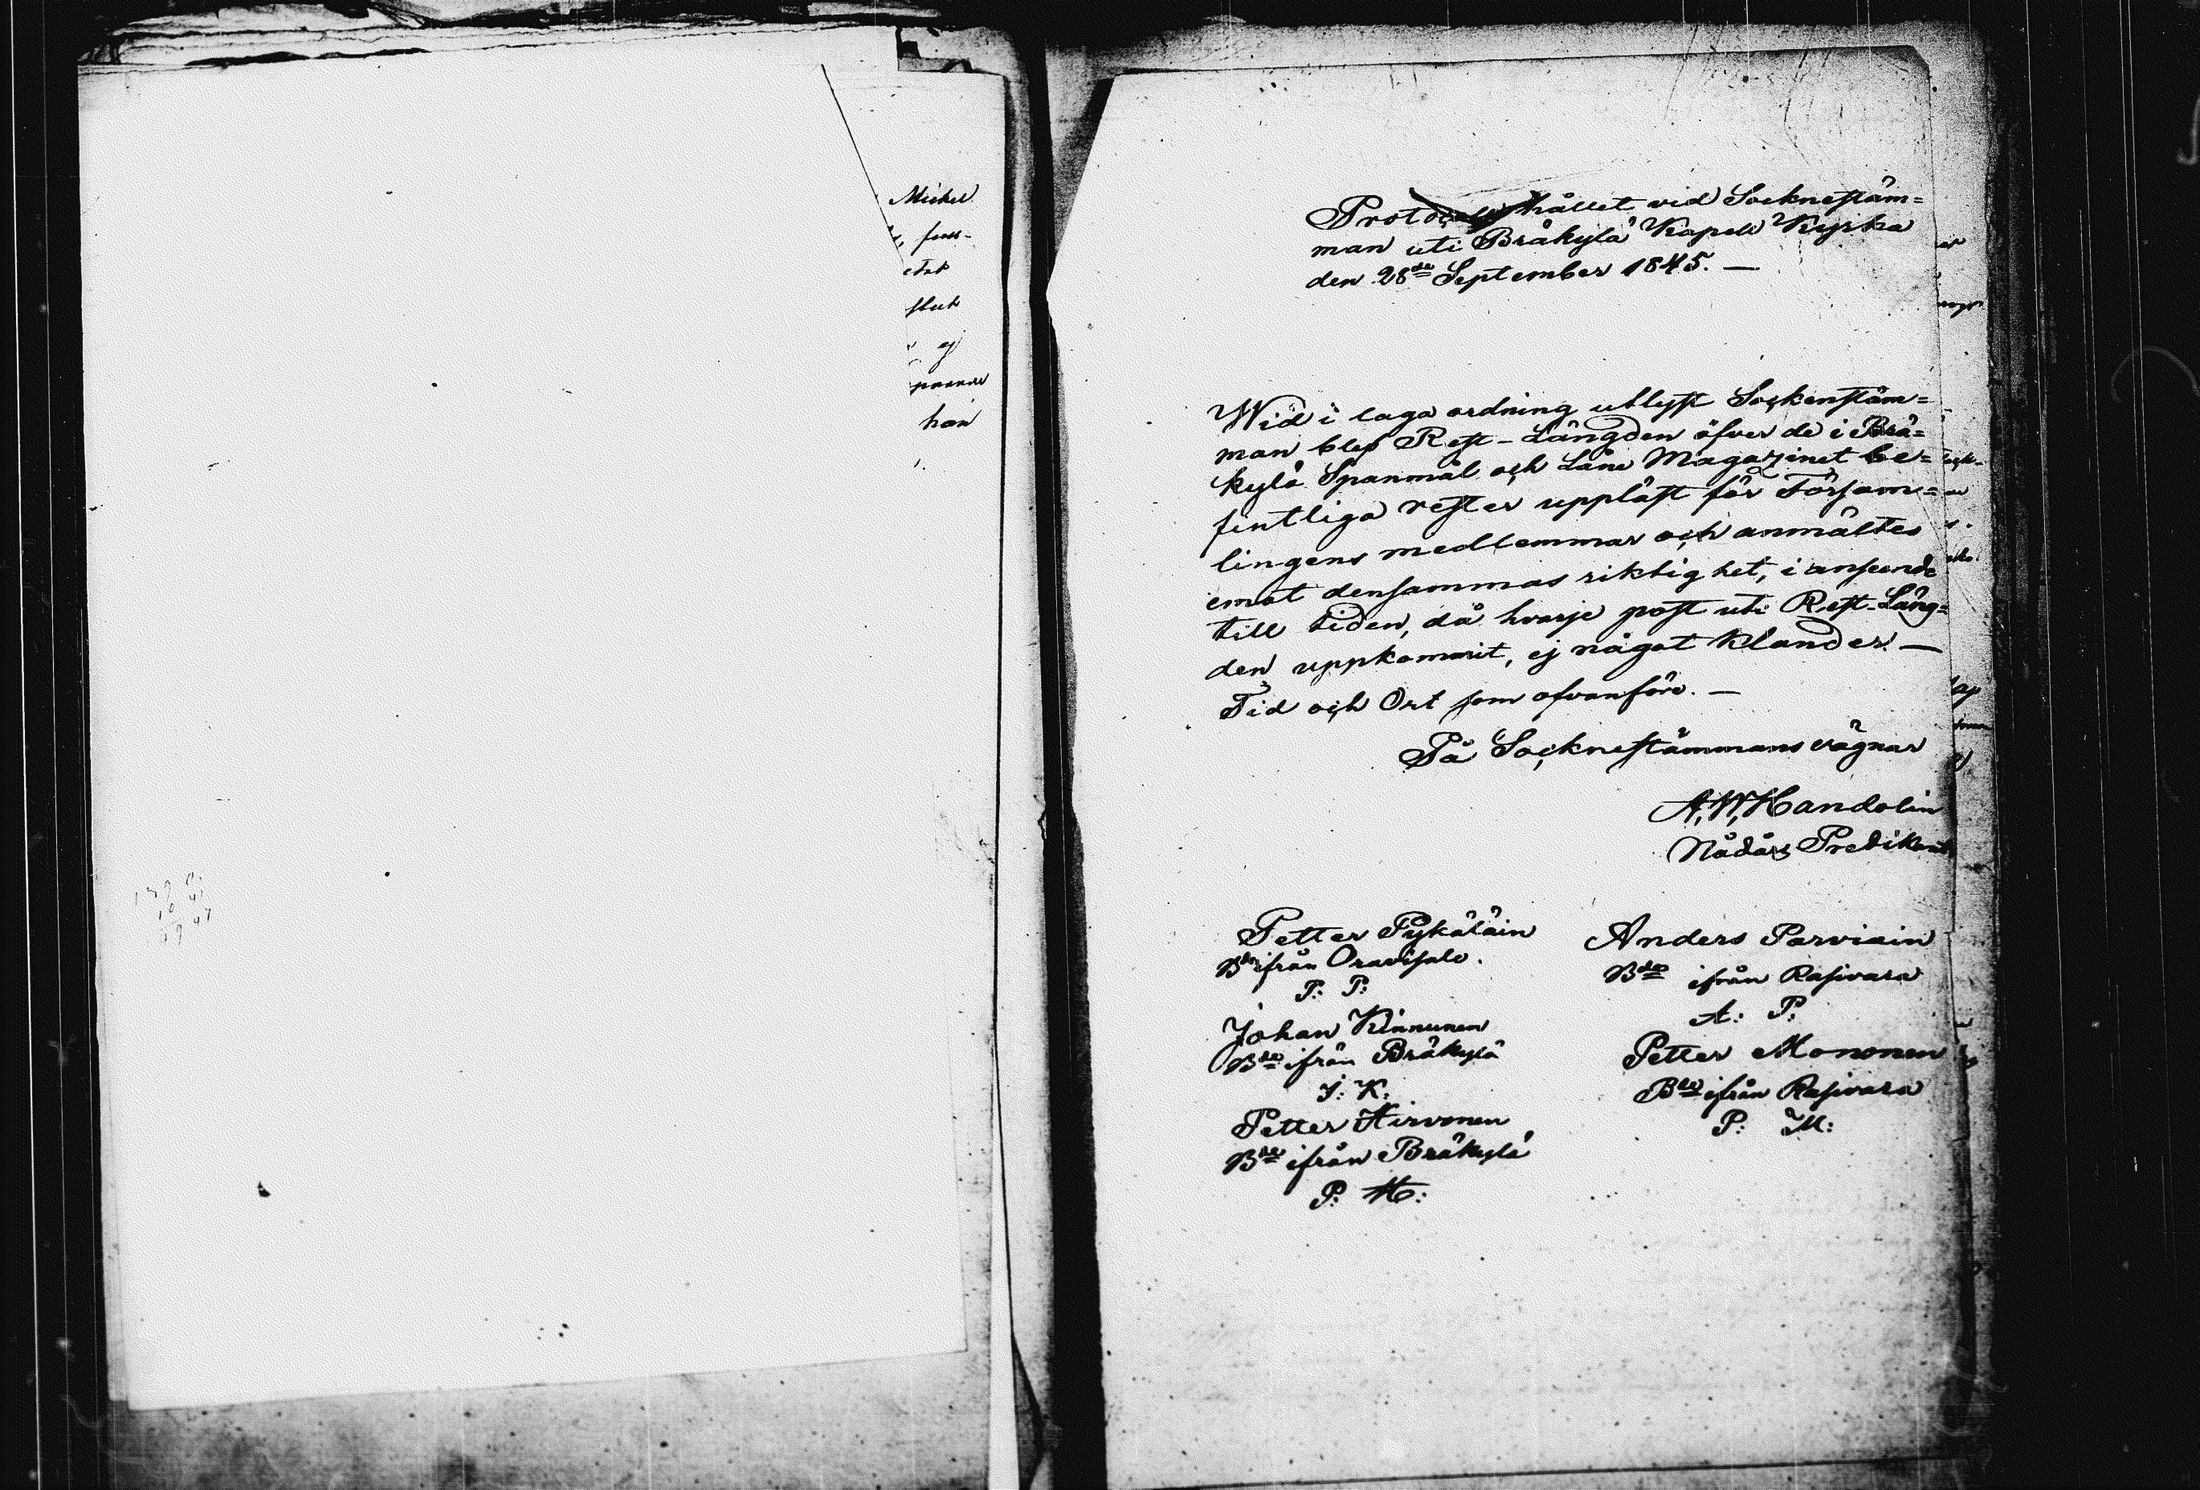 Michel
slut
ej
han
Protocoll hållet vid Socknestäm=
man uti Bräkylä Kapell Kyrka
den 28de September 1845. —
Wid i laga ordning utlyst Sockenstäm=
man blef Rest-Längden öfver de i Brä=
kylä Spanmål och Låne Magazinet be=
fintliga rester uppläst för Försam=
lingens medlemmar och anmältes
emot densammas riktighet, i anseende
till tiden, då hvarje post uti Rest-Läng=
den uppkommit, ej något klander. —
Tid och Ort som ofvanföre. —
På Socknestämmans vägnar
A, W, Handolin
Nådårs Predikant
Petter Pykäläin
Bde ifrån Oravisalo.
P: P:
Johan Kinnunen
Bde ifrån Bräkylä
J: K:
Petter Hirvonen
Bde ifrån Bräkylä
P: H:
Anders Parviain
Bde ifrån Rasivara
A: P:
Petter Mononen
Bde ifrån Rasivara
P: M: